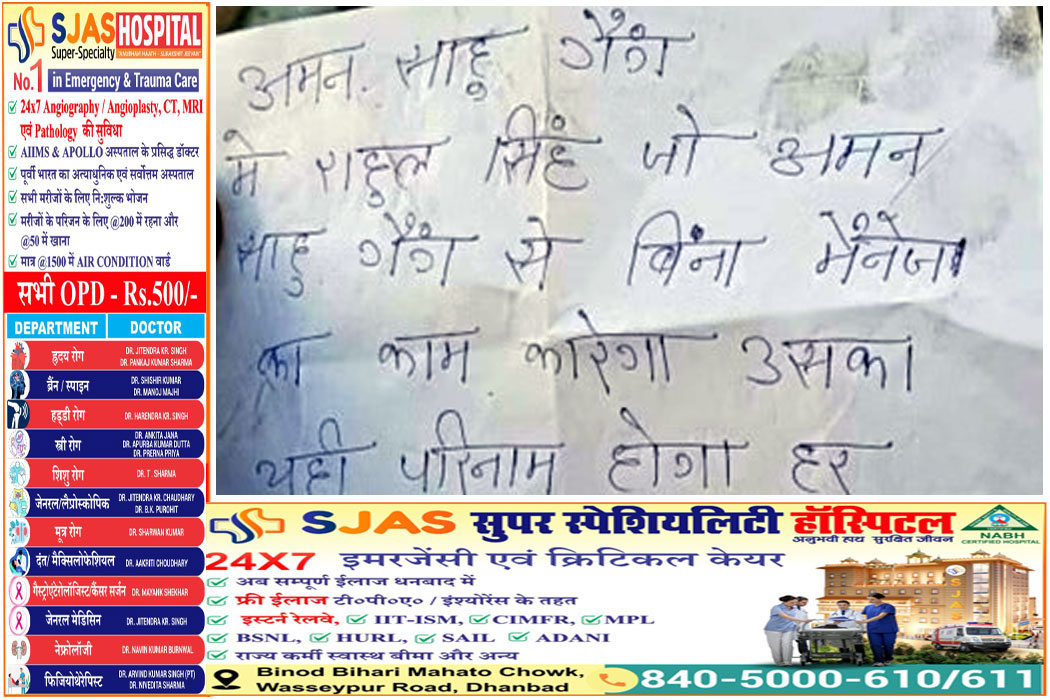 SJAS HOSPITAL
Super-Specialty
No.1 in Emergency & Trauma Care
24x7 Angiography / Angioplasty, CT, MRI
एवं Pathology की सुविधा
AIIMS & APOLLO अस्पताल के प्रसिद्ध डॉक्टर
पूर्वी भारत का अत्याधुनिक एवं सर्वोत्तम अस्पताल
सभी मरीजों के लिए नि:शुल्क भोजन
मरीजों के परिजन के लिए @200 में रहना और
@50 में खाना
मात्र @1500 में AIR CONDITION वार्ड
सभी OPD - Rs.500/-
DEPARTMENT DOCTOR
हृदय रोग DR. JITENDRA KR. SINGH
DR. PANKAJ KUMAR SHARMA
ब्रैंन / स्पाइन DR. SHISHIR KUMAR
DR. MANOJ MAJHI
हड्डी रोग DR. HARENDRA KR. SINGH
स्त्री रोग DR. ANKITA JANA
DR. APURBA KUMAR DUTTA
DR. PRERNA PRIYA
शिशु रोग DR. T. SHARMA
जेनरल/लैप्रोस्कोपिक DR. JITENDRA KR. CHAUDHARY
DR. B.K. PUROHIT
मूत्र रोग DR. SHARWAN KUMAR
दंत/मैक्सिलोफेशियल DR. AAKRITI CHOUDHARY
गैस्ट्रोएंटेरोलॉजिस्ट/कैंसर सर्जन DR. MAYANK SHEKHAR
जेनरल मेडिसिन DR. JITENDRA KR. SINGH
नेफ्रोलॉजी DR. NAMIN KUMAR BURNWAL
फिजियोथेरेपिस्ट DR. ARVIND KUMAR SINGH (PT)
DR. NIVEDITA SHARMA
अमन. साहू गैंग
मे राहुल सिंह जो अमन
साहु गैंग से बिंना मेंनेजा
का काम कारेगा उसका
यही परिनाम होगा हर
SJAS सुपर स्पेशियलिटी हॉस्पिटल
अनुभवी हाथ सुरक्षित जीवन
NABH
CERTIFIED HOSPITAL
24X7 इमरजेंसी एवं क्रिटिकल केयर
अब सम्पूर्ण ईलाज धनबाद में
फ्री ईलाज टी०पी०ए० / इंश्योरेंस के तहत
इस्टर्न रेलवे, IIT-ISM, CIMFR, MPL
BSNL, HURL, SAIL ADANI
राज्य कर्मी स्वास्थ बीमा और अन्य
SJAS
Binod Bihari Mahato Chowk,
Wasseypur Road, Dhanbad
840-5000-610/611